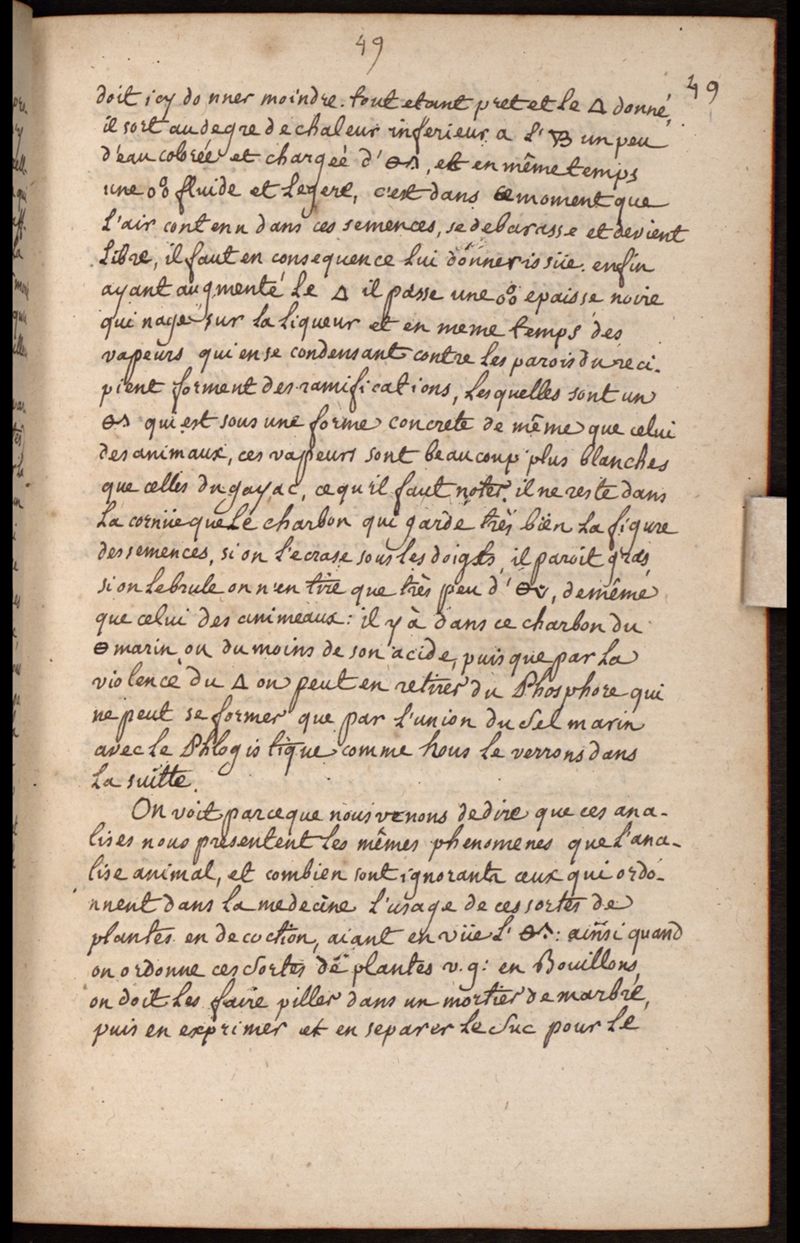 49
49
doit icy donner moindre. tout etant pret et le 🜂 donné
il sort au degre de chaleur inferieur a l'🝫 un peu
d'eau colorée et chargée d'🜔^, et en même temps
une o°o fluide et legere, c'est dans ce moment que
l'air contenu dans ces semences, se debarasse et devient
libre, il faut en consequence lui donner issüe. enfin
ayant augmenté le 🜂 il passe une o°o epaisse noire
qui nage sur la liqueur et en meme temps des
vapeurs qui en se condensant contre les parois du reci-
pient forment des ramifications, lesquelles sont un
🜔^ qui est sous une forme concrete de même que celui
des animaux, ces vapeurs sont beaucoup plus blanches
que celles du gayac, ce qu'il faut noter. il ne reste dans
la cornüe que le charbon qui garde très bien la figure
des semences, si on l'ecrase sous les doigts, il paroit gras
si on le brule on n'en tire que très peu d'🜔v, de même
que celui des animeaux: il y à dans ce charbon du
🜔 marin ou du moins de son acide, puis que par la
violence du 🜂 on peut en retirer du Phosphore qui
ne peut se former que par l'union du Sel marin
avec le Phlogistique comme nous le verrons dans
la suitte.
On voit parceque nous venons de dire que ces ana-
lises nous presentent les mêmes phenomenes que l'ana-
lise animal, et combien sont ignorants ceux qui ordo-
nnent dans la medecine l'usage de ces sortes de
plantes en decoction, aiant en vüe l'🜔^: ainsi quand
on ordonne ces sortes de plantes v.g: en Bouillons,
on doit les faire piller dans un mortier de marbre,
puis en exprimer et en separer le Suc pour le